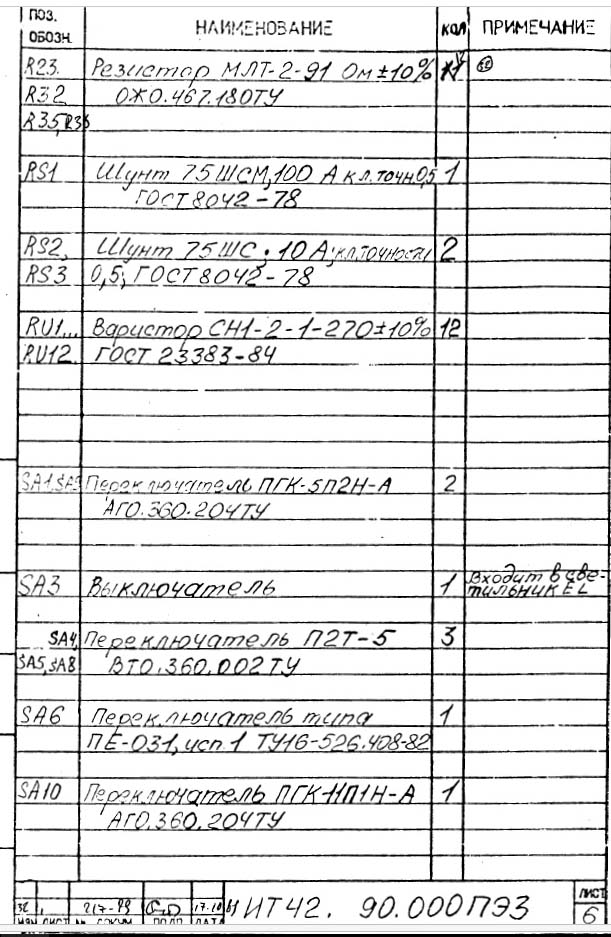 ПОЗ. ОБОЗН. НАИМЕНОВАНИЕ КОЛ ПРИМЕЧАНИЕ
R23. Резистор МЛТ-2-91 Ом ±10%
R32 ОЖО.467.180ТУ
R35, R38
RS1 Шунт 75ШСМ, 100 А кл.точн.0,5 1
ГОСТ 8042-78
RS2, Шунт 75ШС; 10 А; кл.точности 2
RS3 0,5; ГОСТ 8042-78
RU1... Варистор СН1-2-1-270±10% 12
RU12 ГОСТ 23383-84
SA1, Переключатель ПГК-5П2Н-А 2
АГО.360.204ТУ
SA3 Выключатель 1 Входит в све-
тильник EL
SA4, Переключатель П2Т-5 3
SA5, SA8 ВТО.360.002 ТУ
SA6 Переключатель типа 1
ПЕ-031, исп.1 ТУ16-526.408-82
SA10 Переключатель ПГК-11П1Н-А 1
АГО.360.204ТУ
32 217-89 17.10
ИЗМ ЛИСТ № ДОКУМ ПОДП ДАТА
ИТ42. 90.000ПЭ3
ЛИСТ
6